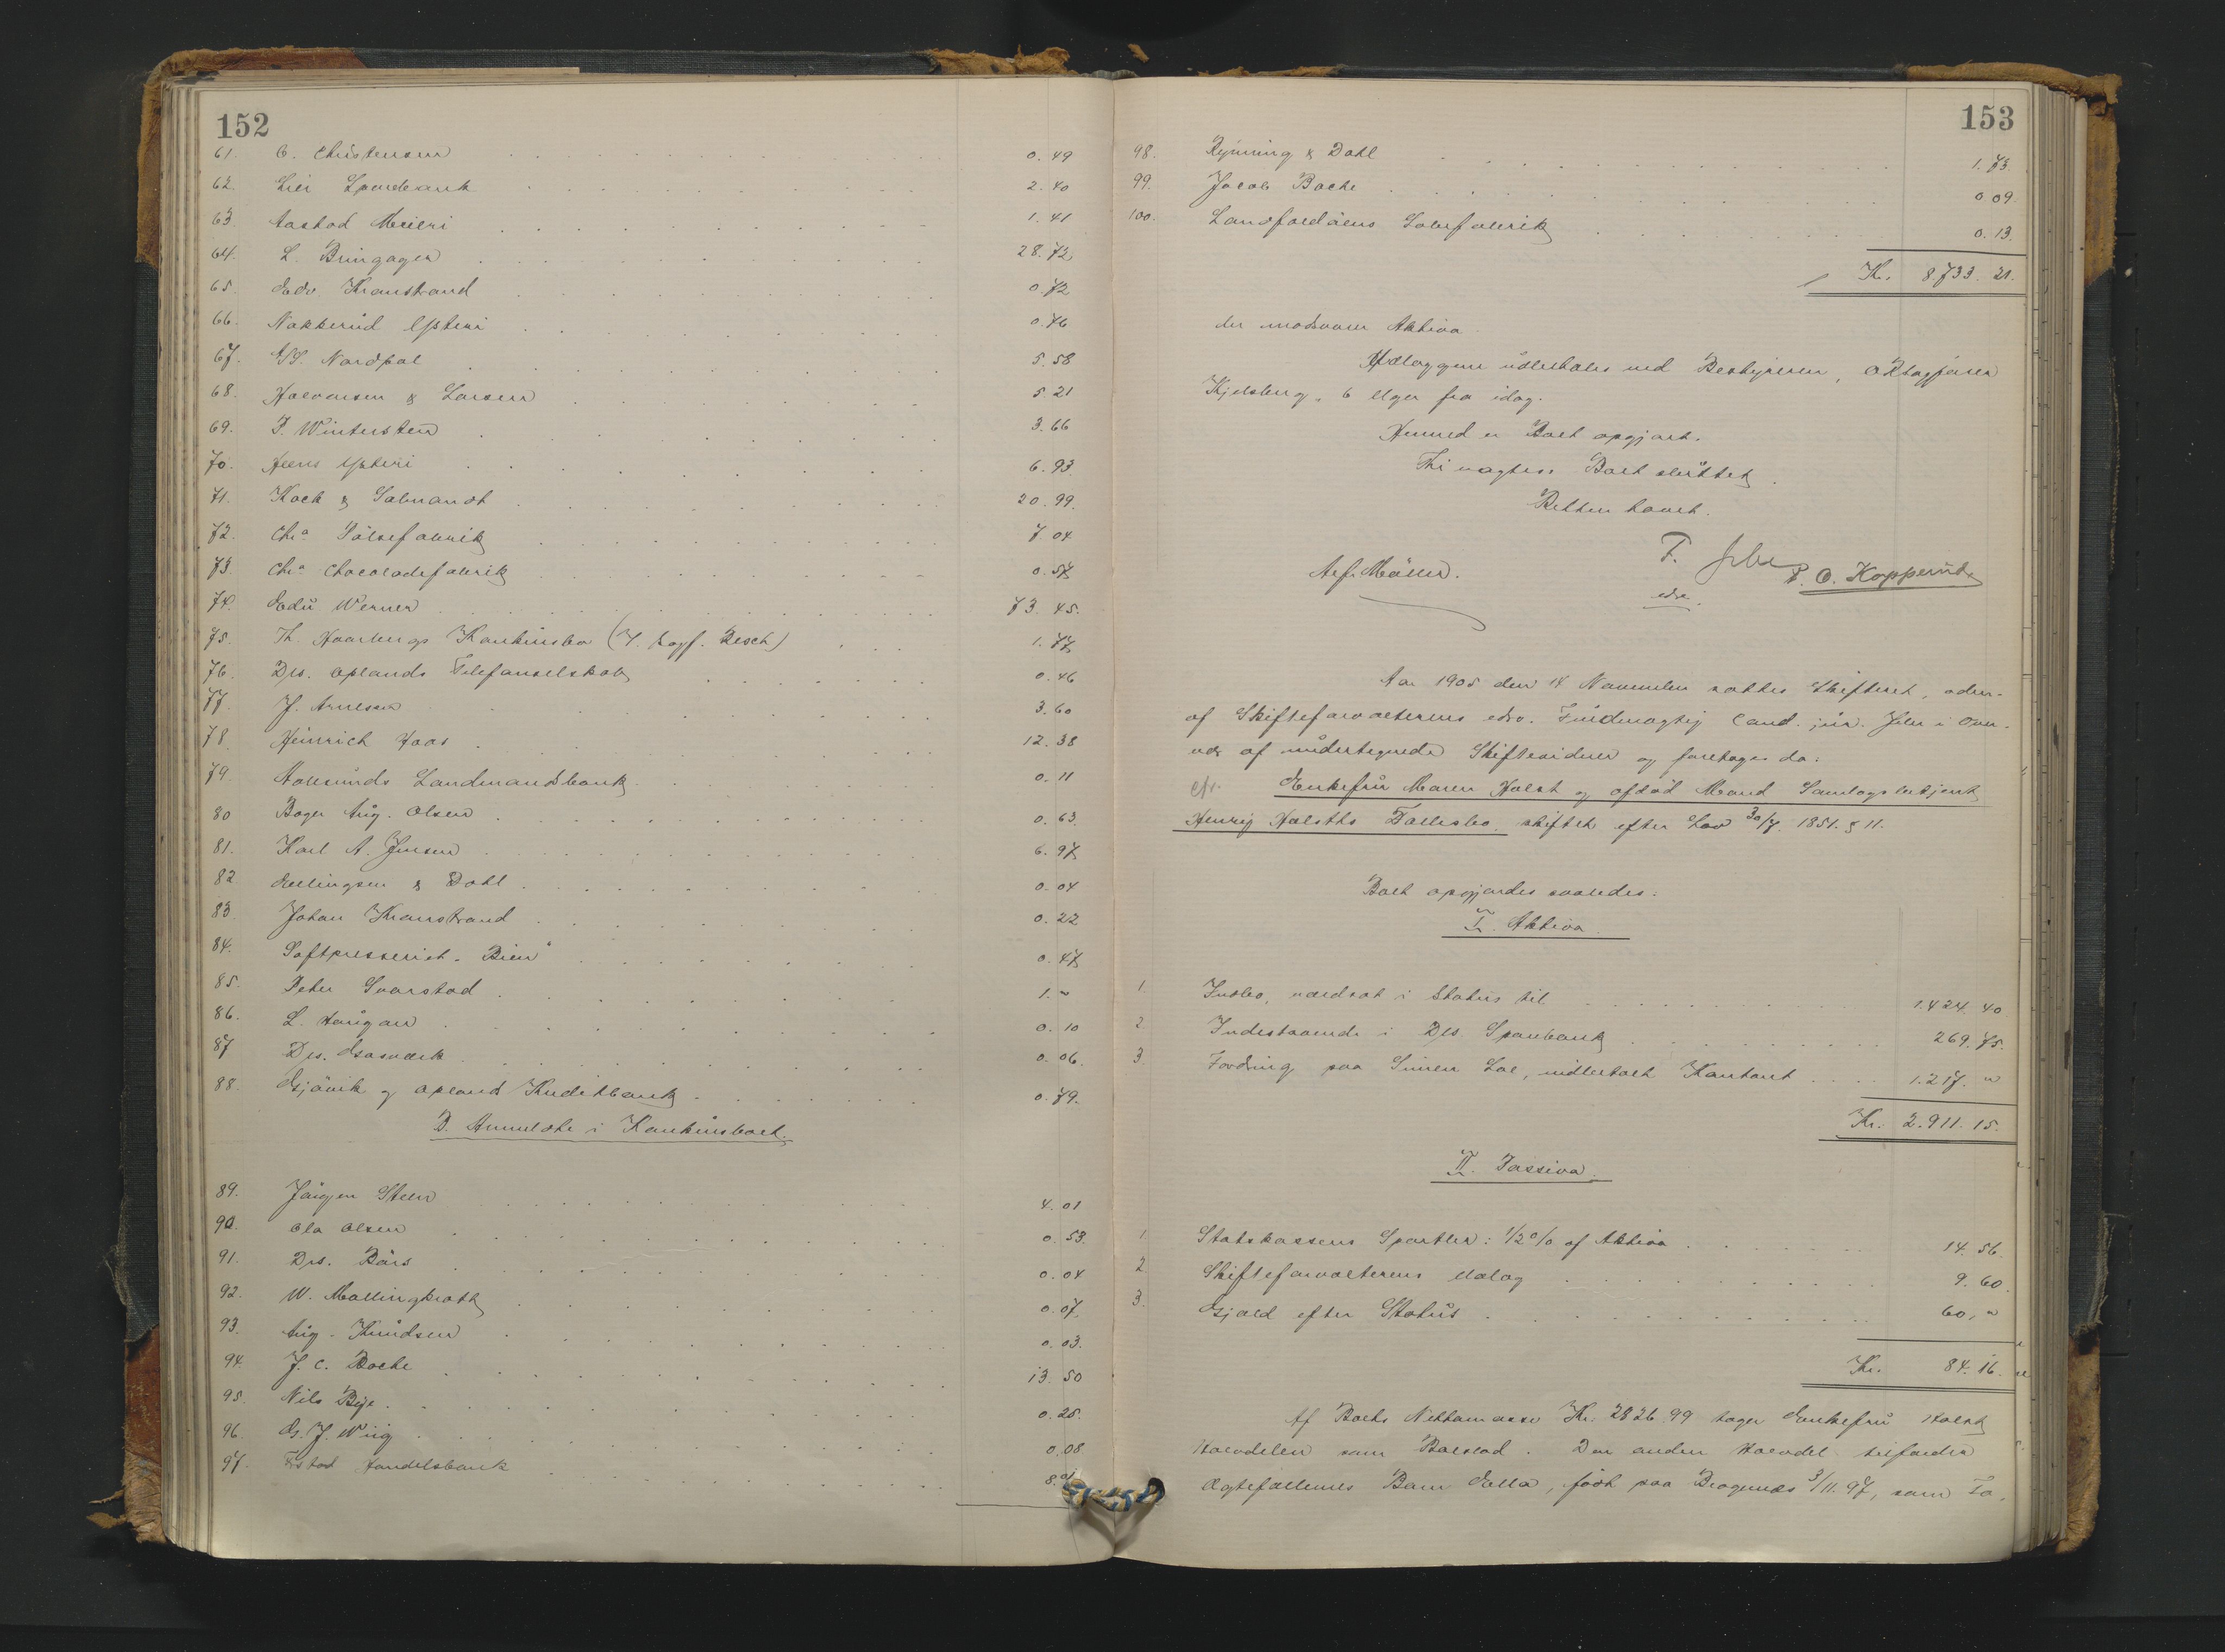 152
61. C. Christensen 0.49
62. Lier Sparebank 2.40
63. Aastad Meieri 1.41
64. L. Bringager 28.72
65. Edv. Kranstrand 0.72
66. Nakkerud Ysteri 0.76
67. A/S. Nordpol 5.58
68. Halvorsen & Larsen 5.21
69. P. Wintersten 3.66
70. Ysteri 6.93
71. Kock & Salmandt 20.99
72. Chr.a Pølsefabrik 7.04
73. Chr.a Chocoladefabrik 0.57
74. Edu Werner 73.45.
75. Th. Haarbergs Konkursbo 1.77
76. Drs. Oplands Telefonselskab 0.46
77. J. Arnesen 3.60
78. Heinrich Haas 12.38
79. Landmandsbank 0.11
80 Bager Aug. Olsen 0.63
81. Karl A. Jensen 6.97
82 Ellingsen & Dahl 0.04
83 Johan Kranstrand 0.22
84. Saftpresseriet „Bien" 0.47
85. Peter Svarstad 1. "
86. L. Haugan 0.10
87 Drs. Gasværk 0.06.
88. Gjøvik og Opland Kreditbank 0.79.
B. Anmeldte i Konkursboet.
89. Jørgen Steen 4.01
90. Ola Olsen 0.53.
91. Drs. Børs 0.04
92. W. Mallingkrott 0.07.
93. Aug. Knudsen 0.03.
94. J. C. Boche 13.50
95. Nils Bye 0.25.
96. G. J. Wiig 0.08
97. Handelsbank 8.01
153
98. Rynning & Dahl 1.73
99. Jacob Boche 0.09.
100. Sæbefabrik 0.13.
Kr. 8733.21.
der modsvarer Aktiva.
Udlæggene udbetales ved Bestyreren, O.R.sagfører
Kjelsberg, 6 Uger fra idag.
Hermed er Boet opgjort.
Thi vragtes Boet sluttet.
Retten hævet.
F.
edsv.
P. O. Kopperud
Aar 1905 den 14 November sattes Skifteret, adm.
af Skifteforvalterens edsv. Fuldmægtig Cand. jur. i Over-
vær af undertegnede Skiftevidner og foretoges da:
Enkefru Maren Holst og afdød Mand Samlagsbetjent
Henrij Holsths Fællesbo, skiftet efter Lov 30/7. 1851. § 11.
Boet opgjordes saaledes:
I. Aktiva.
1. Indbo, værdsat i Status til 1.424.40
2. Indestaaende i Drs. Sparebank 269.75.
3. Fordring paa Simen Lae, indbetalt Kontant 1.217. "
Kr. 2.911.15.
II. Passiva.
1. Statskassens Sportler: 1/2 % af Aktiva 14.56.
2 Skifteforvalterens Udlæg 9.60.
3. Gjæld efter Status 60, "
Kr. 84.16.
Af Boets Nettomasse Kr. 2826.99 tager Enkefru Holst
Halvdelen som Boslod. Den anden Halvdel tilfalder
Ægtefællernes Barn Ella, født paa Bragernes 3/11. 97, som Fa,